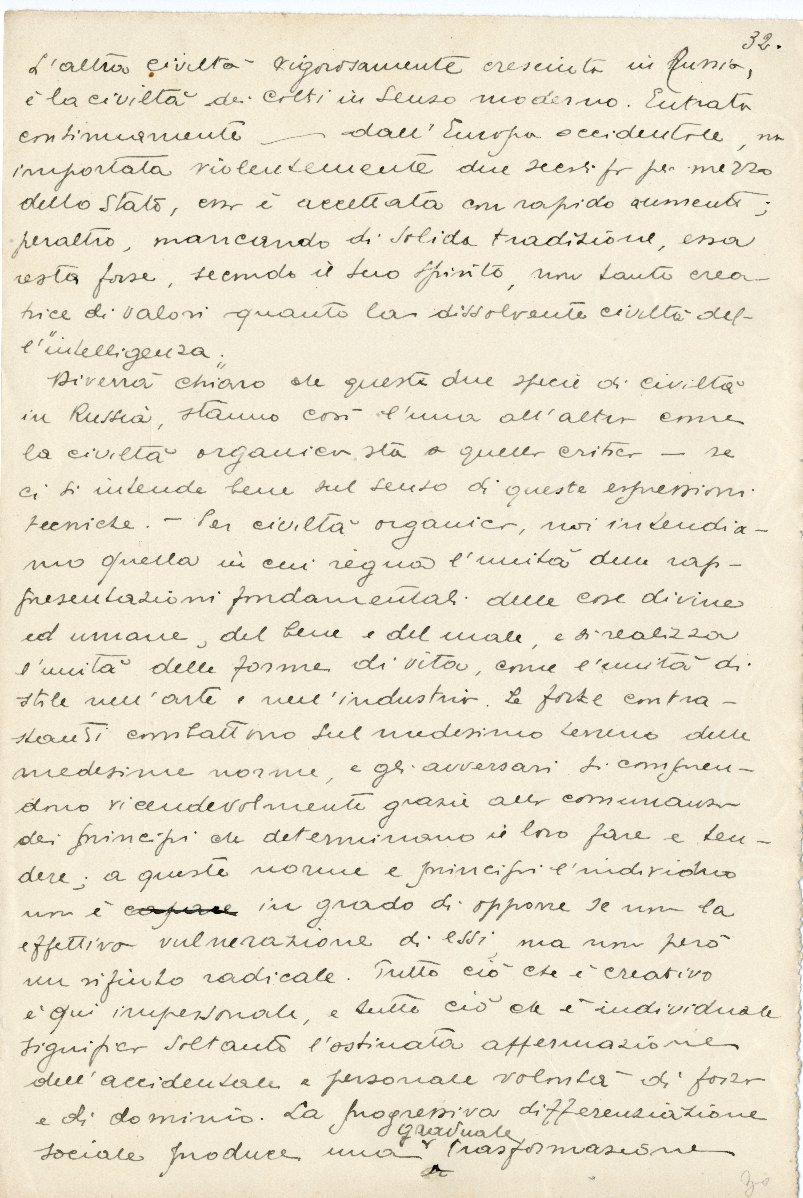 32.
L'altra civiltà vigorosamente cresciuta in Russia,
è la civiltà dei colti in senso moderno. Entrata
continuamente — dall'Europa occidentale,
importata violentemente due secoli fa per mezzo
dello Stato, essa è accettata con rapido aumento;
peraltro, mancando di solida tradizione, essa
resta forse, secondo il suo spirito, non tanto crea-
trice di valori quanto la dissolvente civiltà del-
l'"intelligenza".
Diverrà chiaro che queste due specie di civiltà
in Russia, stanno così l'una all'altra come
la civiltà organica sta a quella critica — se
ci si intende bene sul senso di queste espressioni
tecniche. — Per civiltà organica, noi intendia-
mo quella in cui regna l'unità delle rap-
presentazioni fondamentali delle cose divine
ed umane, del bene e del male, e si realizza
l'unità delle forme di vita, come l'unità di
stile nell'arte e nell'industria. Le forze contra-
stanti combattono sul medesimo terreno delle
medesime norme, e gli avversari si compren-
dono vicendevolmente grazie alla comunanza
dei principi che determinano il loro fare e ten-
dere; a queste norme e principi l'individuo
non è capace in grado di opporre se non la
effettiva vulnerazione di essi, ma non però
un rifiuto radicale. Tutto ciò che è creativo
è qui impersonale, e tutto ciò che è individuale
significa soltanto l'ostinata affermazione
dell'accidentale e personale volontà di forza
e di dominio. La progressiva differenziazione
graduale
sociale produce una trasformazione